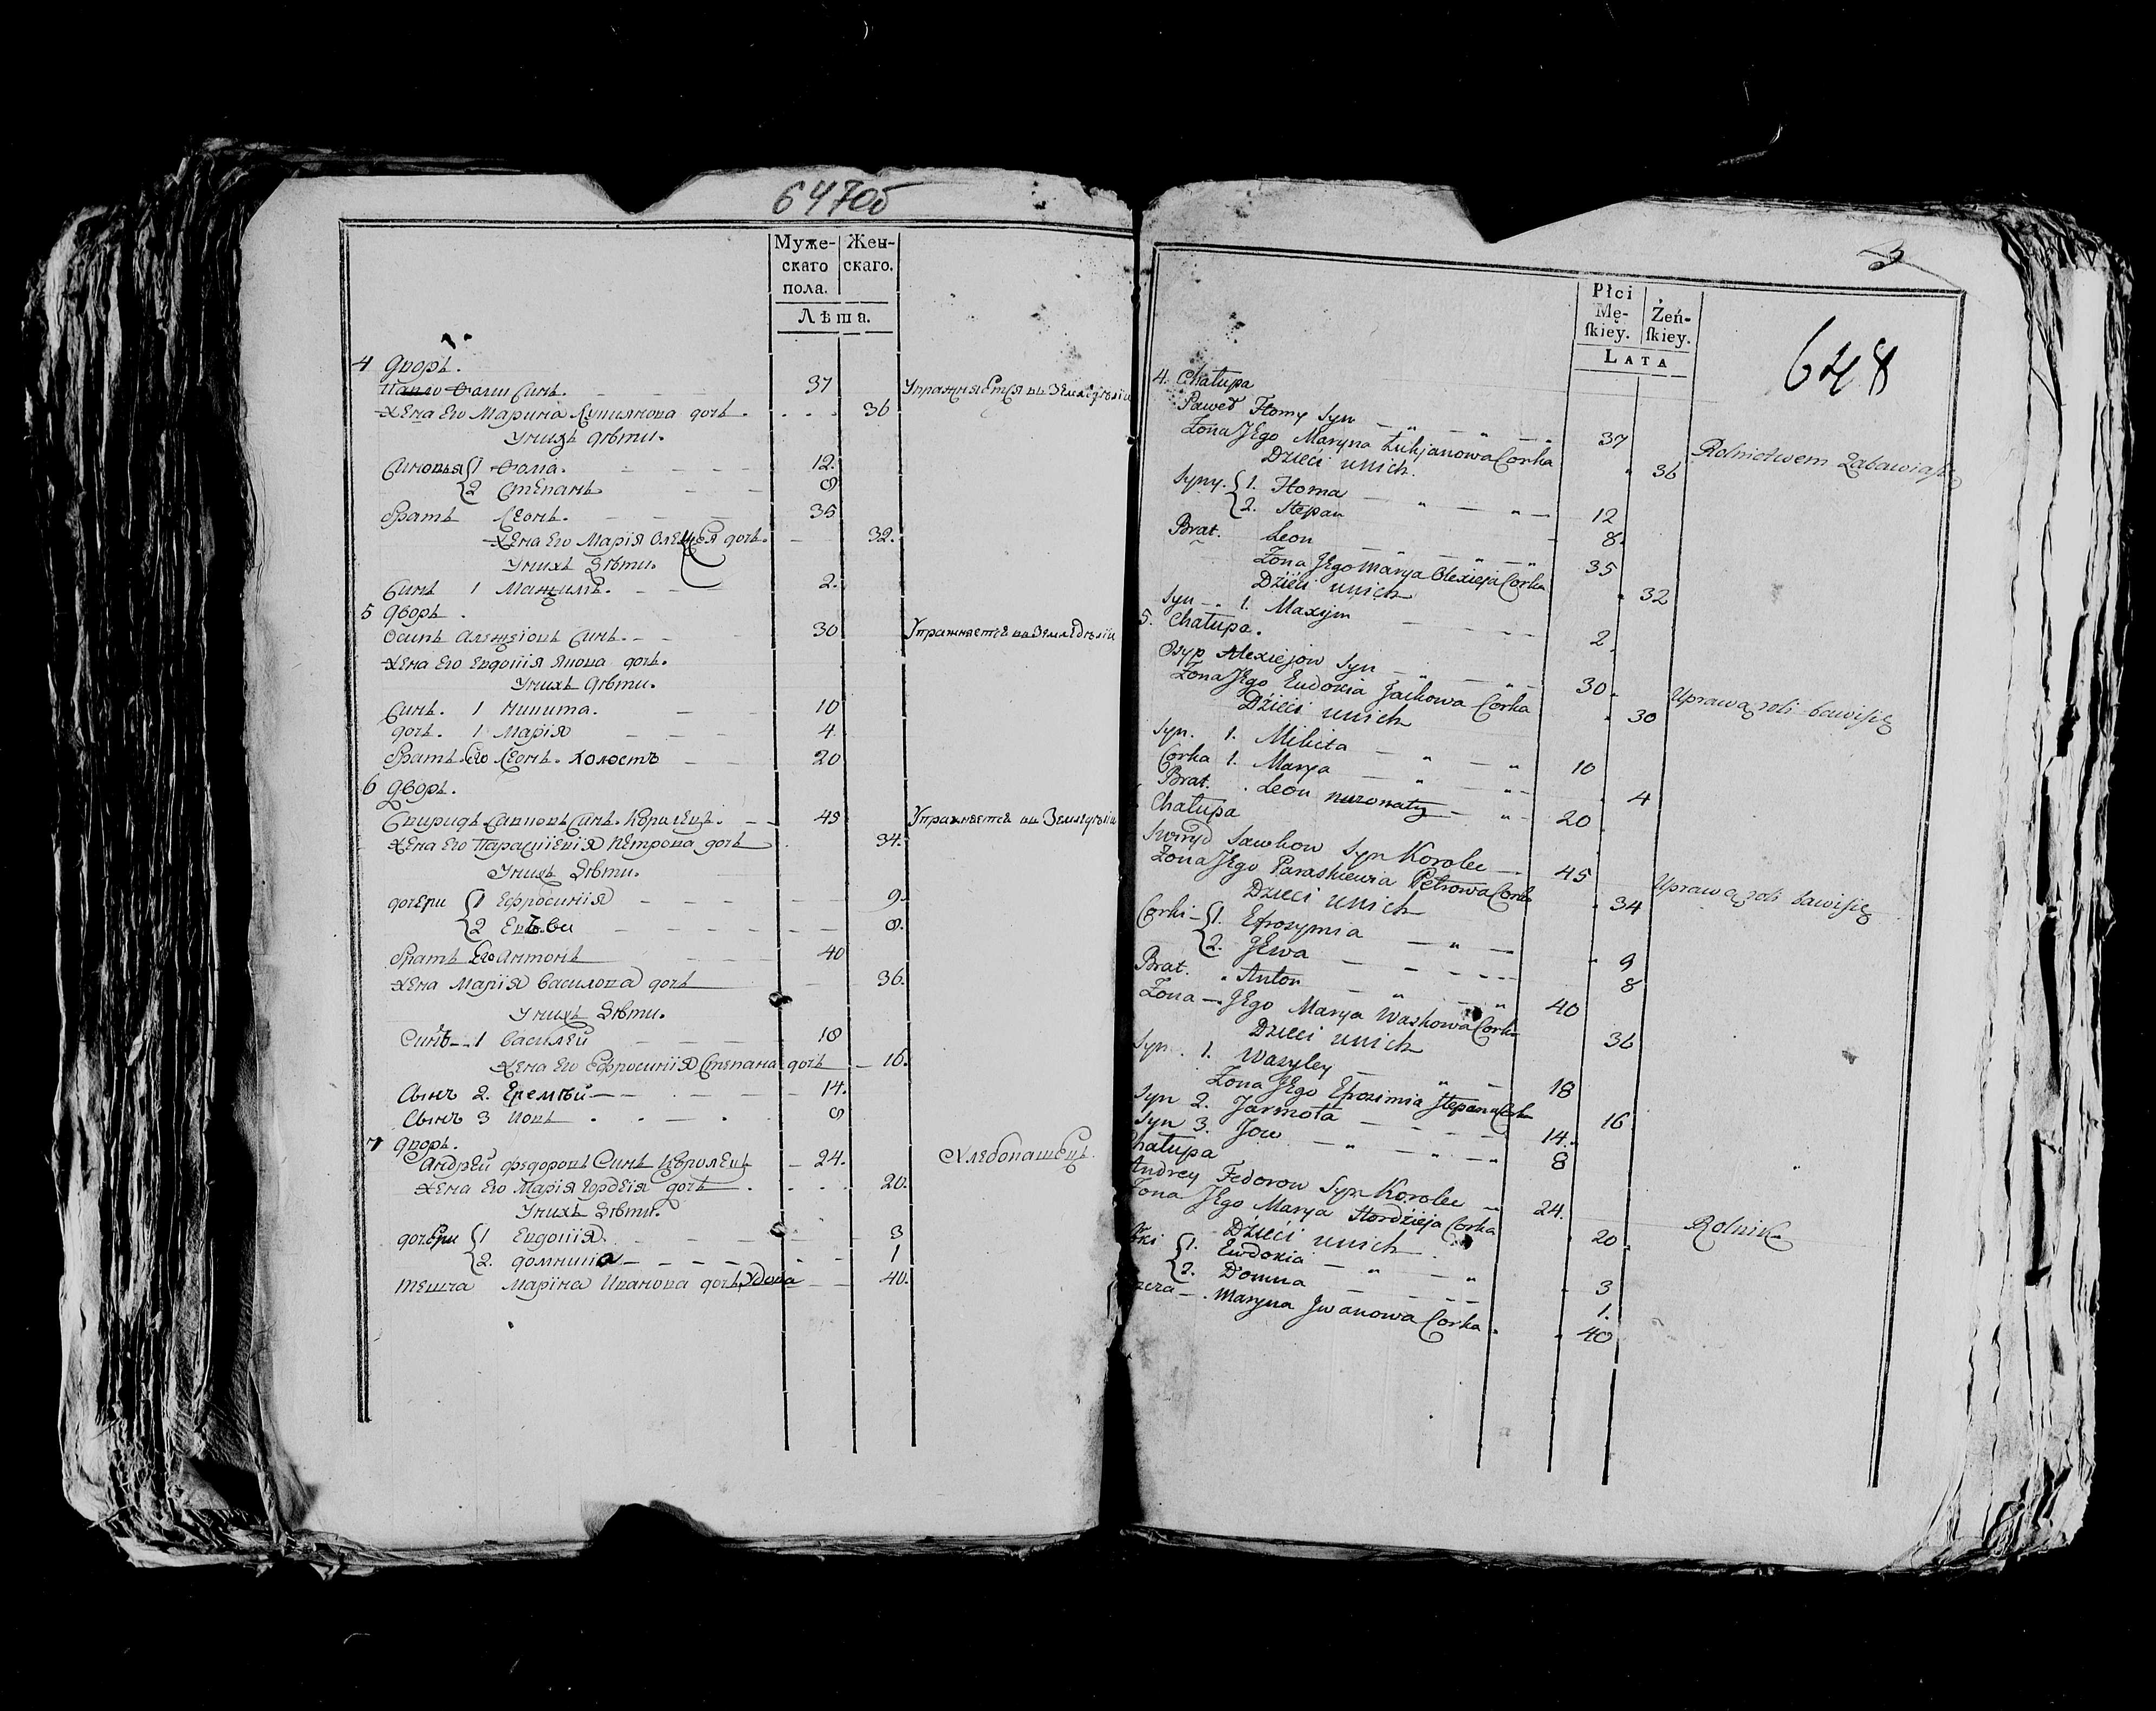 647об
Муже-
скаго
пола.
Жен-
скаго.
Лѣта.
4 дворъ.
Павло Фоми Синъ. 37 Упражняется въ Земледѣліи
Жена Его Марина Лукіянова дочь. 36
У нихъ дѣти.
Синовья 1 Фома. 12.
2 Степанъ 8
братъ Леонъ. 35
Жена Его Марія Олексѣя дочь. 32.
У нихъ дѣти.
Синъ 1 Макзимъ. 2.
5 дворъ.
Осипъ Алекзіовъ Синъ. 30 Упражняется въ Земледѣліи
Жена Его Евдокія Янова дочь.
У нихъ дѣти.
Синъ. 1 Никита. 10
дочь. 1 Марія 4
братъ Его Леонъ. холостъ 20
6 дворъ.
Свиридъ Савковъ Синъ. Королецъ. 45 Упражняется въ Земледѣліи
Жена Его Параскіевія Петрова дочь 34.
У нихъ дѣти.
дочери 1 Ефросинія 9.
2 Евва 8.
братъ Его Антонъ 40
Жена Марія Василова дочь 36.
У нихъ дѣти.
Синъ 1 Василей 18
Жена Его Єфросинія Степана дочь 16.
Сынъ 2. Еремѣй 14.
Сынъ 3 Иовъ 8
7 дворъ.
Андрей Федоровъ Синъ Королецъ 24. Хлебопашецъ
Жена Его Марія Гордѣя дочь 20.
У нихъ дѣти.
дочери 1 Евдокія 3
2. домникія 1
теща Маріна Иванова дочь, Удова 40.
Płci
Mę-
ſkiey.
Żeń-
ſkiey.
LATA
648
4. Chałupa
Paweł Homy Syn 37 Rolnictwem Zabawia się
Żona Jego Maryna Łukjanowa Corka 36
Dzieci u nich.
Syny. 1. Homa 12
2. Stepan 8.
Brat. Leon 35
Żona Jego Marya Olexieja Corka 32
Dzieci u nich
Syn 1. Maxym 2.
5. Chałupa.
Osyp Alexiejow Syn 30. Uprawą roli bawi się
Żona Jego Eudoxia Jackowa Corka 30
Dzieci u nich
Syn. 1. Mikita 10
Corka 1. Marya 4
Brat. Leon nieżonaty 20
Chałupa
Swiryd Sawkow Syn Korolec 45 Uprawą roli bawi się
Żona Jego Paraskiewia Petrowa Corka 34
Dzieci u nich
Corki 1. Efrozymia 9
2. Jewa 8
Brat. Anton 40
Żona Jego Marya Waskowa Corka 36
Dzieci u nich
Syn. 1. Wasyley 18
Żona Jego Efrozimia Stepana Cork 16
Syn 2. Jarmoła 14.
Syn 3. Jow 8
Chałupa
Andrey Fedorow Syn Korolec 24. Rolnik
Żona Jego Marya Hordzieja Corka 20
Dzieci u nich
1. Ewdoxia 3
2. Domna 1.
Maryna Jwanowa Corka 40